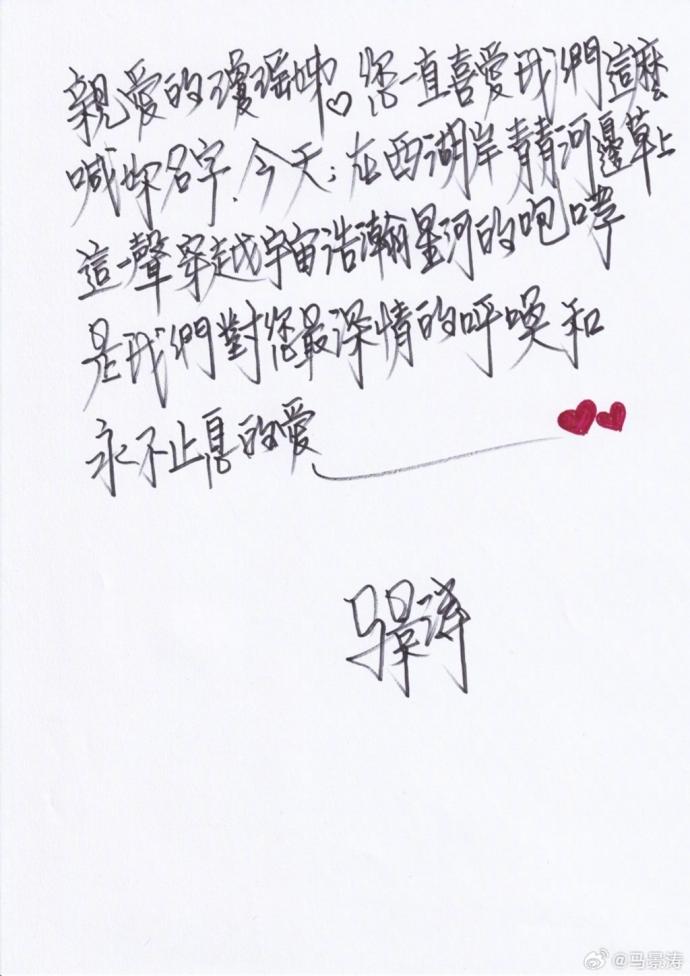 親愛的瓊瑤姊♡您一直喜愛我們這麼
喊妳名字.今天;在西湖岸青青河邊草上
這一聲穿越宇宙浩瀚星河的咆哮
是我們對您最深情的呼喚和
永不止息的愛
馬景涛
@马景涛